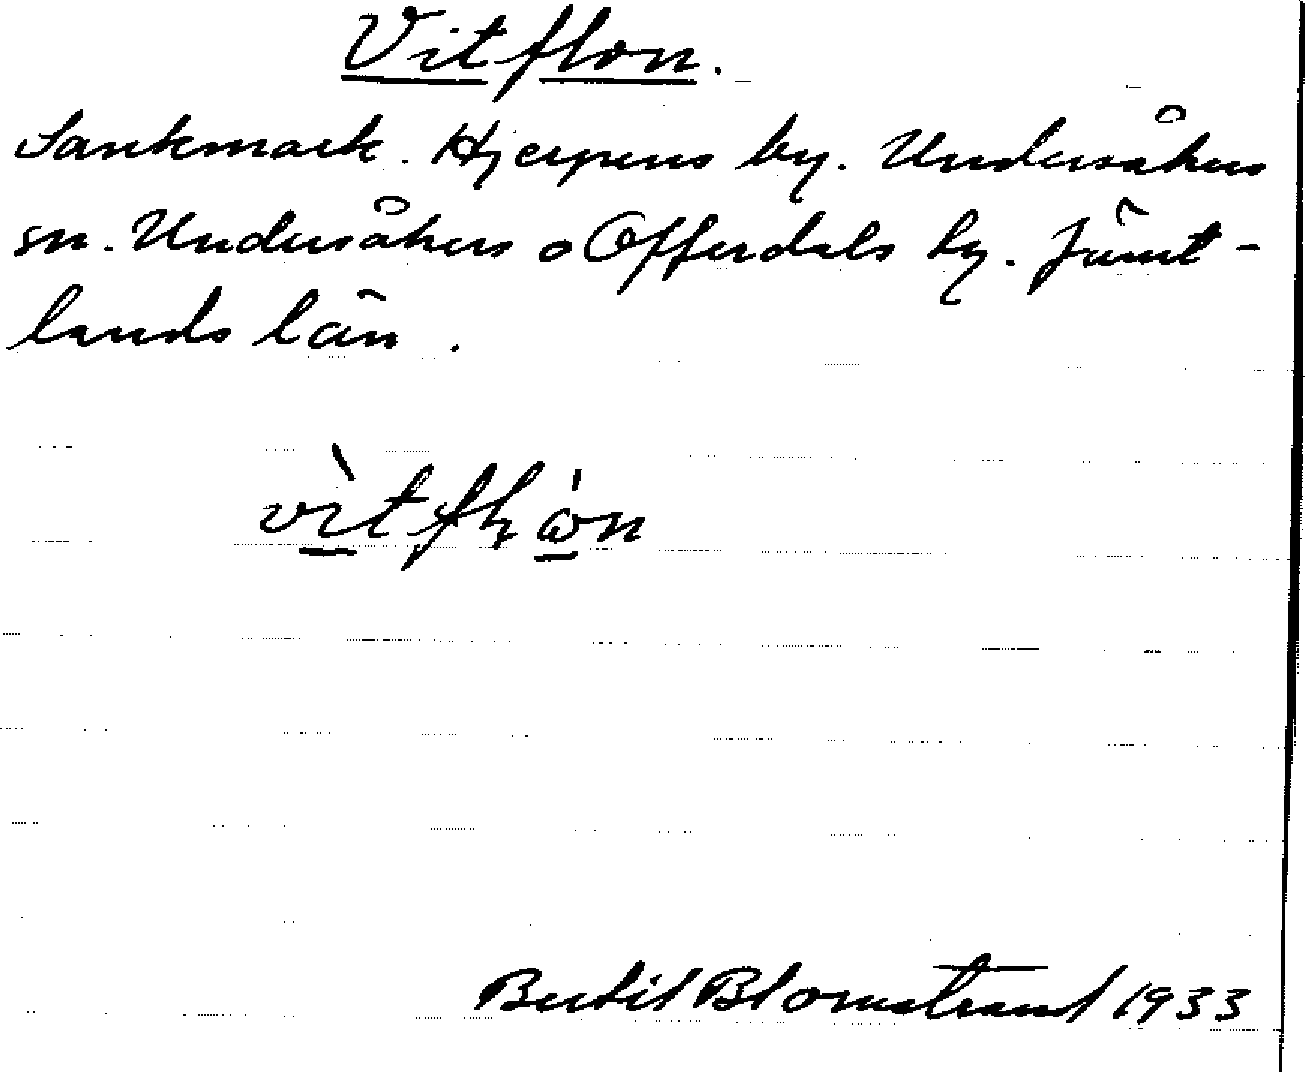 Vitflon.
Sankmark. Hjerpens by. Undersåkers
sn. Undersåkers o Offerdals hg. Jämt-
lands län.
Bertil Blomstrand 1933